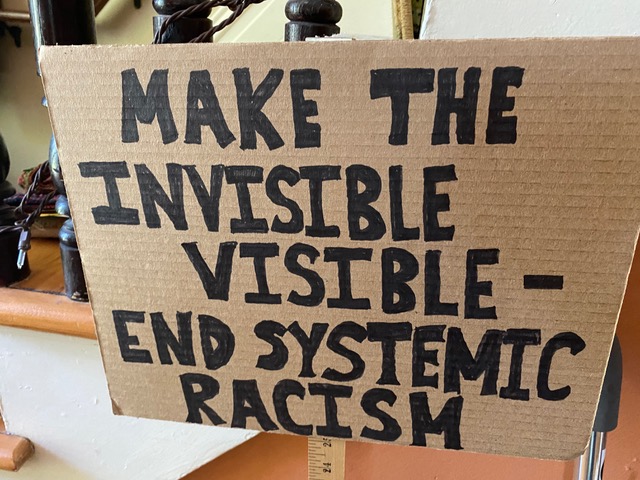 MAKE THE
INVISIBLE
VISIBLE-
END SYSTEMIC
RACISM